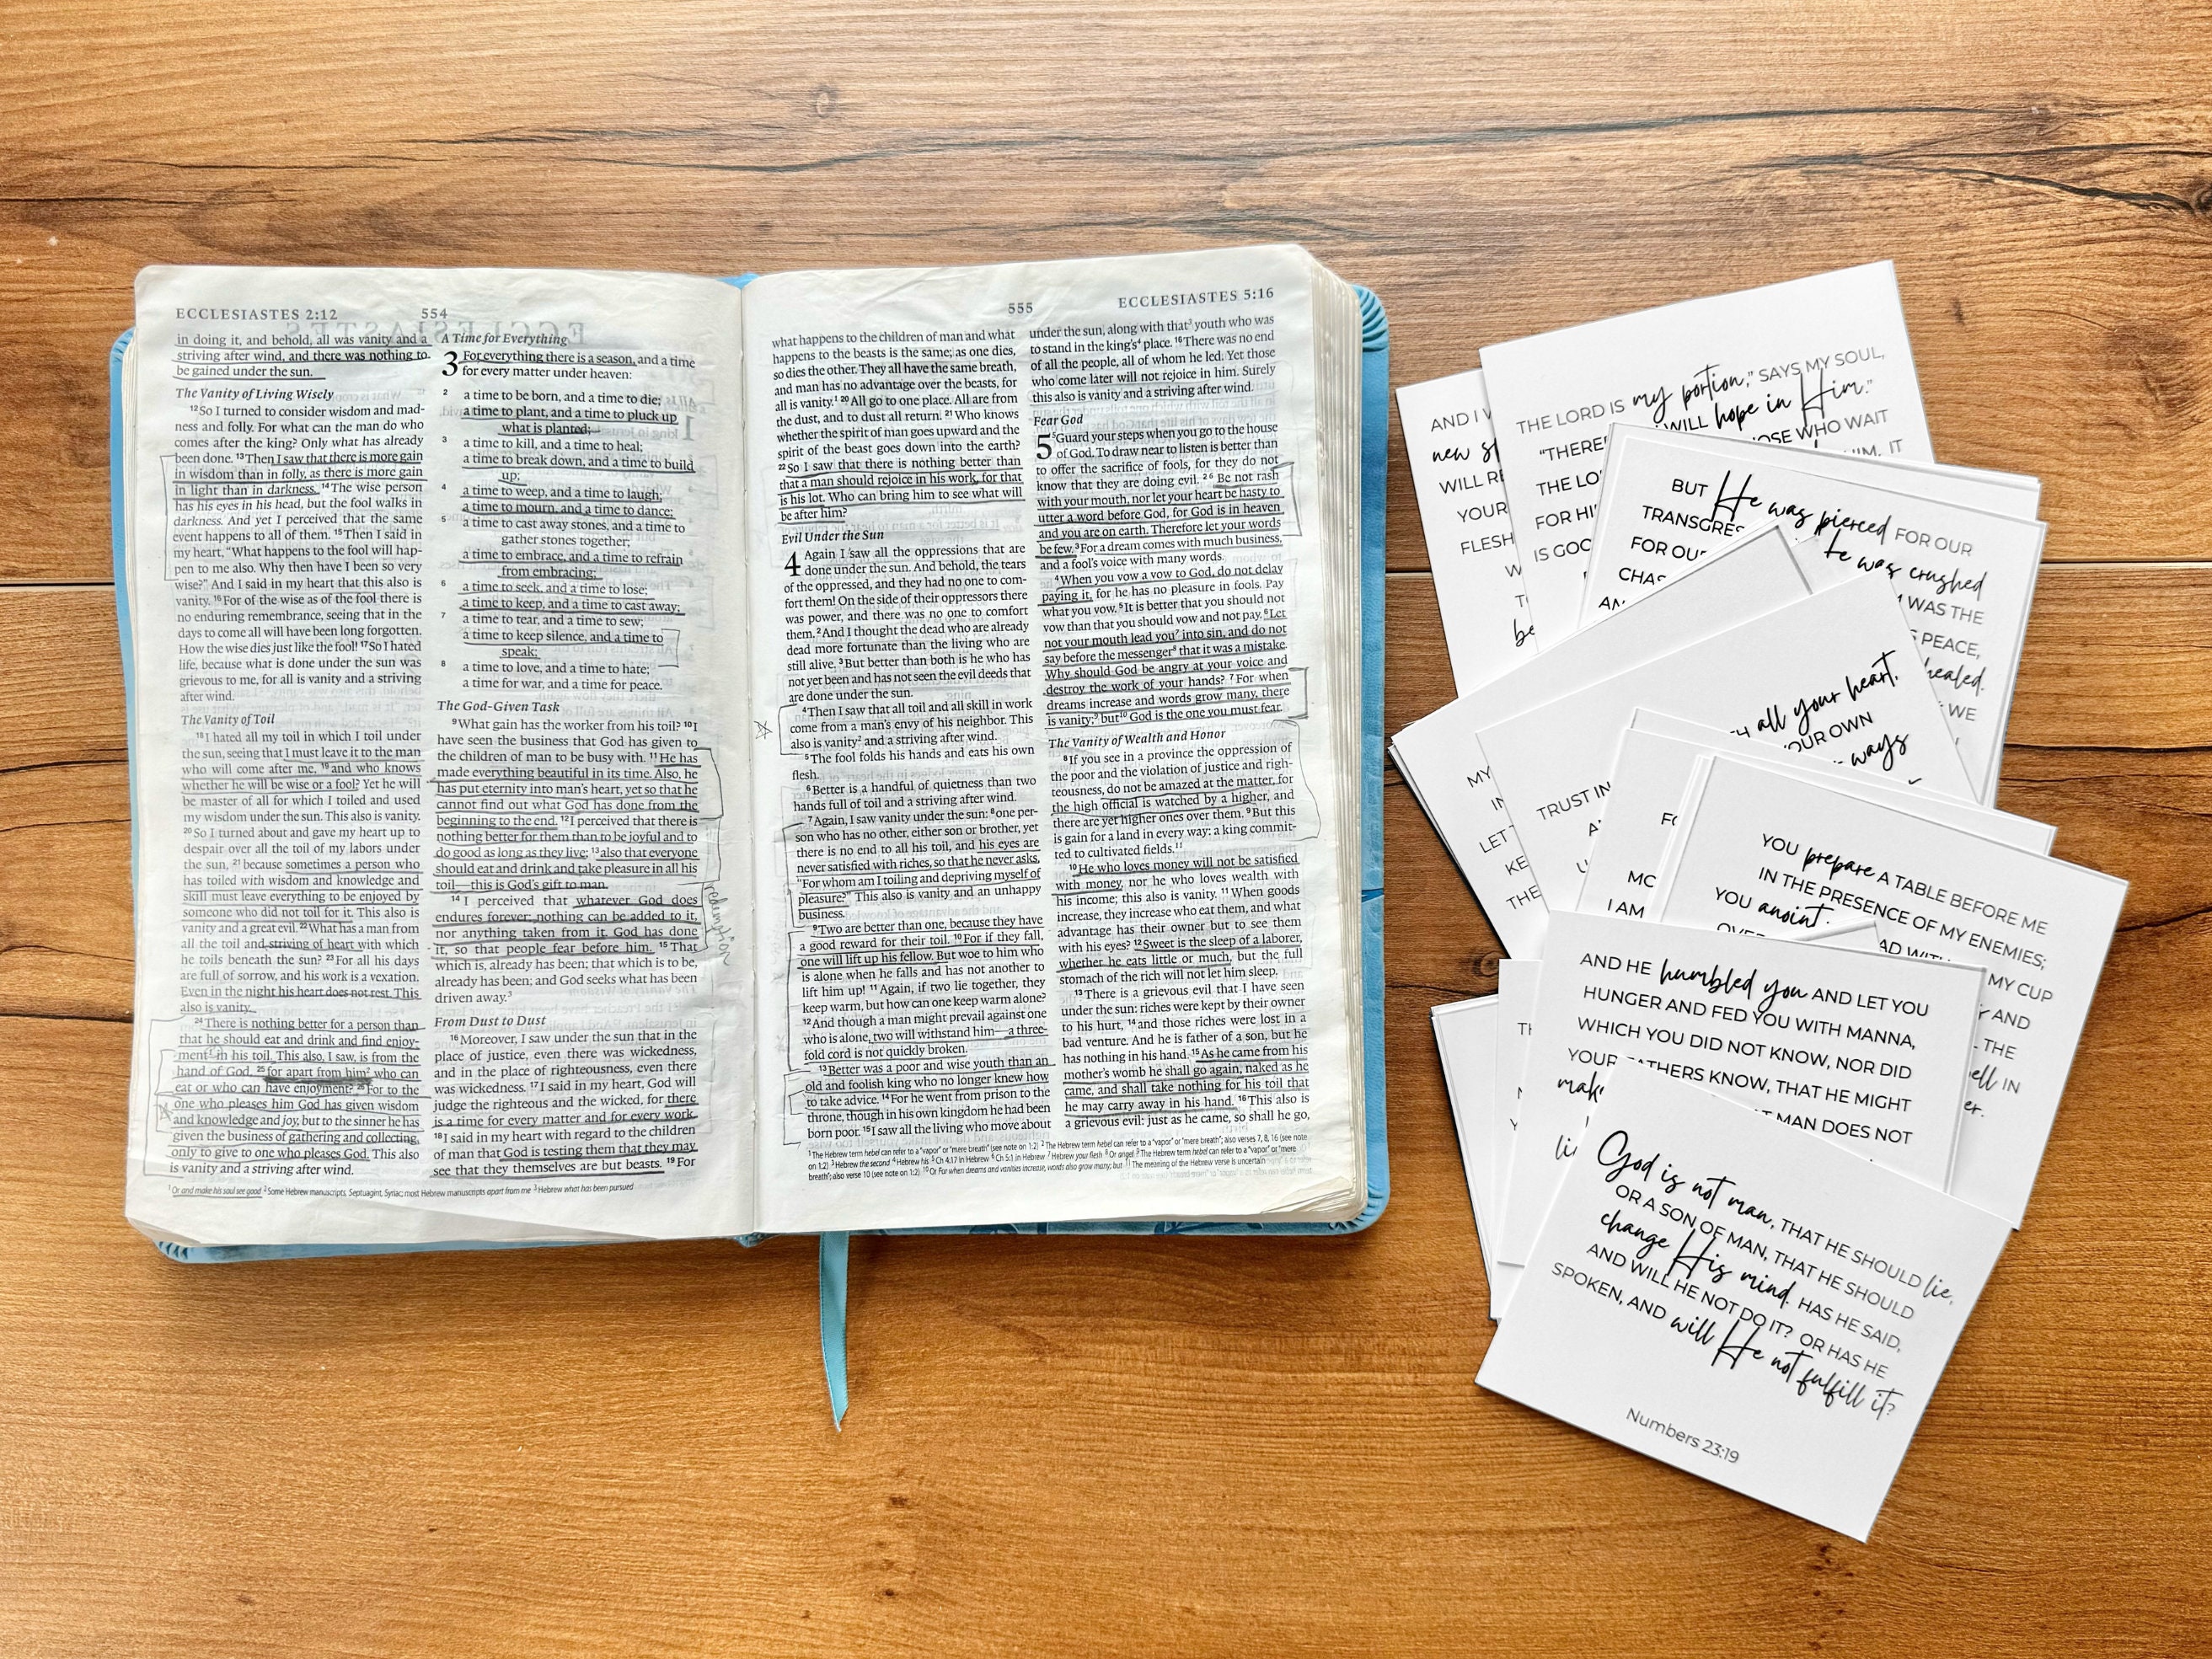 ECCLESIASTES 2:12
554
in doing it, and behold, all was vanity and a
striving after wind, and there was nothing to
be gained under the sun.
The Vanity of Living Wisely
12So I turned to consider wisdom and mad-
ness and folly. For what can the man do who
comes after the king? Only what has already
been done. 13Then I saw that there is more gain
in wisdom than in folly, as there is more gain
in light than in darkness. 14The wise person
has his eyes in his head, but the fool walks in
darkness. And yet I perceived that the same
event happens to all of them. 15Then I said in
my heart, "What happens to the fool will hap-
pen to me also. Why then have I been so very
wise?" And I said in my heart that this also is
vanity. 16For of the wise as of the fool there is
no enduring remembrance, seeing that in the
days to come all will have been long forgotten.
How the wise dies just like the fool! 17So I hated
life, because what is done under the sun was
grievous to me, for all is vanity and a striving
after wind.
The Vanity of Toil
18I hated all my toil in which I toil under
the sun, seeing that I must leave it to the man
who will come after me, 19and who knows
whether he will be wise or a fool? Yet he will
be master of all for which I toiled and used
my wisdom under the sun. This also is vanity.
20So I turned about and gave my heart up to
despair over all the toil of my labors under
the sun, 21because sometimes a person who
has toiled with wisdom and knowledge and
skill must leave everything to be enjoyed by
someone who did not toil for it. This also is
vanity and a great evil. 22What has a man from
all the toil and striving of heart with which
he toils beneath the sun? 23For all his days
are full of sorrow, and his work is a vexation.
Even in the night his heart does not rest. This
also is vanity.
24There is nothing better for a person than
that he should eat and drink and find enjoy-
ment1 in his toil. This also, I saw, is from the
hand of God, 25for apart from him2 who can
eat or who can have enjoyment? 26For to the
one who pleases him God has given wisdom
and knowledge and joy, but to the sinner he has
given the business of gathering and collecting,
only to give to one who pleases God. This also
is vanity and a striving after wind.
A Time for Everything
3 For everything there is a season, and a time
for every matter under heaven:
2 a time to be born, and a time to die;
a time to plant, and a time to pluck up
what is planted;
3 a time to kill, and a time to heal;
a time to break down, and a time to build
up;
4 a time to weep, and a time to laugh;
a time to mourn, and a time to dance;
5 a time to cast away stones, and a time to
gather stones together;
a time to embrace, and a time to refrain
from embracing;
6 a time to seek, and a time to lose;
a time to keep, and a time to cast away;
7 a time to tear, and a time to sew;
a time to keep silence, and a time to
speak;
8 a time to love, and a time to hate;
a time for war, and a time for peace.
The God-Given Task
9What gain has the worker from his toil? 10I
have seen the business that God has given to
the children of man to be busy with. 11He has
made everything beautiful in its time. Also, he
has put eternity into man's heart, yet so that he
cannot find out what God has done from the
beginning to the end. 12I perceived that there is
nothing better for them than to be joyful and to
do good as long as they live; 13also that everyone
should eat and drink and take pleasure in all his
toil—this is God's gift to man.
14I perceived that whatever God does
endures forever; nothing can be added to it,
nor anything taken from it. God has done
it, so that people fear before him. 15That
which is, already has been; that which is to be,
already has been; and God seeks what has been
driven away.3
redemption
From Dust to Dust
16Moreover, I saw under the sun that in the
place of justice, even there was wickedness,
and in the place of righteousness, even there
was wickedness. 17I said in my heart, God will
judge the righteous and the wicked, for there
is a time for every matter and for every work.
18I said in my heart with regard to the children
of man that God is testing them that they may
see that they themselves are but beasts. 19For
1Or and make his soul see good 2Some Hebrew manuscripts, Septuagint, Syriac; most Hebrew manuscripts apart from me 3Hebrew what has been pursued
555
ECCLESIASTES 5:16
what happens to the children of man and what
happens to the beasts is the same; as one dies,
so dies the other. They all have the same breath,
and man has no advantage over the beasts, for
all is vanity.1 20All go to one place. All are from
the dust, and to dust all return. 21Who knows
whether the spirit of man goes upward and the
spirit of the beast goes down into the earth?
22So I saw that there is nothing better than
that a man should rejoice in his work, for that
is his lot. Who can bring him to see what will
be after him?
Evil Under the Sun
4 Again I saw all the oppressions that are
done under the sun. And behold, the tears
of the oppressed, and they had no one to com-
fort them! On the side of their oppressors there
was power, and there was no one to comfort
them. 2And I thought the dead who are already
dead more fortunate than the living who are
still alive. 3But better than both is he who has
not yet been and has not seen the evil deeds that
are done under the sun.
4Then I saw that all toil and all skill in work
come from a man's envy of his neighbor. This
also is vanity2 and a striving after wind.
5The fool folds his hands and eats his own
flesh.
6Better is a handful of quietness than two
hands full of toil and a striving after wind.
7Again, I saw vanity under the sun: 8one per-
son who has no other, either son or brother, yet
there is no end to all his toil, and his eyes are
never satisfied with riches, so that he never asks,
"For whom am I toiling and depriving myself of
pleasure?" This also is vanity and an unhappy
business.
9Two are better than one, because they have
a good reward for their toil. 10For if they fall,
one will lift up his fellow. But woe to him who
is alone when he falls and has not another to
lift him up! 11Again, if two lie together, they
keep warm, but how can one keep warm alone?
12And though a man might prevail against one
who is alone, two will withstand him—a three-
fold cord is not quickly broken.
13Better was a poor and wise youth than an
old and foolish king who no longer knew how
to take advice. 14For he went from prison to the
throne, though in his own kingdom he had been
born poor. 15I saw all the living who move about
under the sun, along with that3 youth who was
to stand in the king's4 place. 16There was no end
of all the people, all of whom he led. Yet those
who come later will not rejoice in him. Surely
this also is vanity and a striving after wind.
Fear God
5 5Guard your steps when you go to the house
of God. To draw near to listen is better than
to offer the sacrifice of fools, for they do not
know that they are doing evil. 2 6 Be not rash
with your mouth, nor let your heart be hasty to
utter a word before God, for God is in heaven
and you are on earth. Therefore let your words
be few. 3For a dream comes with much business,
and a fool's voice with many words.
4When you vow a vow to God, do not delay
paying it, for he has no pleasure in fools. Pay
what you vow. 5It is better that you should not
vow than that you should vow and not pay. 6Let
not your mouth lead you7 into sin, and do not
say before the messenger8 that it was a mistake.
Why should God be angry at your voice and
destroy the work of your hands? 7For when
dreams increase and words grow many, there
is vanity;9 but10 God is the one you must fear.
The Vanity of Wealth and Honor
8If you see in a province the oppression of
the poor and the violation of justice and righ-
teousness, do not be amazed at the matter, for
the high official is watched by a higher, and
there are yet higher ones over them. 9But this
is gain for a land in every way: a king commit-
ted to cultivated fields.11
10He who loves money will not be satisfied
with money, nor he who loves wealth with
his income; this also is vanity. 11When goods
increase, they increase who eat them, and what
advantage has their owner but to see them
with his eyes? 12Sweet is the sleep of a laborer,
whether he eats little or much, but the full
stomach of the rich will not let him sleep.
13There is a grievous evil that I have seen
under the sun: riches were kept by their owner
to his hurt, 14and those riches were lost in a
bad venture. And he is father of a son, but he
has nothing in his hand. 15As he came from his
mother's womb he shall go again, naked as he
came, and shall take nothing for his toil that
he may carry away in his hand. 16This also is
a grievous evil: just as he came, so shall he go,
1The Hebrew term hebel can refer to a "vapor" or "mere breath" (see note on 1:2) 2The Hebrew term hebel can refer to a "vapor" or "mere breath"; also verses 7, 8, 16 (see note
on 1:2) 3Hebrew the second 4Hebrew his 5Ch 4:17 in Hebrew 6Ch 5:1 in Hebrew 7Hebrew your flesh 8Or angel 9The Hebrew term hebel can refer to a "vapor" or "mere
breath"; also verse 10 (see note on 1:2) 10Or For when dreams and vanities increase, words also grow many; but 11The meaning of the Hebrew verse is uncertain
AND I
new
WILL
YOUR
FLESH
THE LORD IS my portion," SAYS MY SOUL,
"THERE WILL hope in Him."
THE LO THOSE WHO WAIT
FOR HI HIM. IT
IS GOO
BUT He was pierced FOR OUR
TRANSGRES He was crushed
FOR OUR WAS THE
CHAS PEACE,
AN healed.
WE
MY
IN
LET
KE
THE
all your heart,
YOUR OWN
ways
TRUST IN
MC
I AM
YOU prepare A TABLE BEFORE ME
IN THE PRESENCE OF MY ENEMIES;
YOU anoint
MY CUP
AND
THE
IN
AND HE humbled you AND LET YOU
HUNGER AND FED YOU WITH MANNA,
WHICH YOU DID NOT KNOW, NOR DID
YOUR FATHERS KNOW, THAT HE MIGHT
mak MAN DOES NOT
God is not man, THAT HE SHOULD lie,
OR A SON OF MAN, THAT HE SHOULD
change His mind. HAS HE SAID,
AND WILL HE NOT DO IT? OR HAS HE
SPOKEN, AND will He not fulfill it?
Numbers 23:19